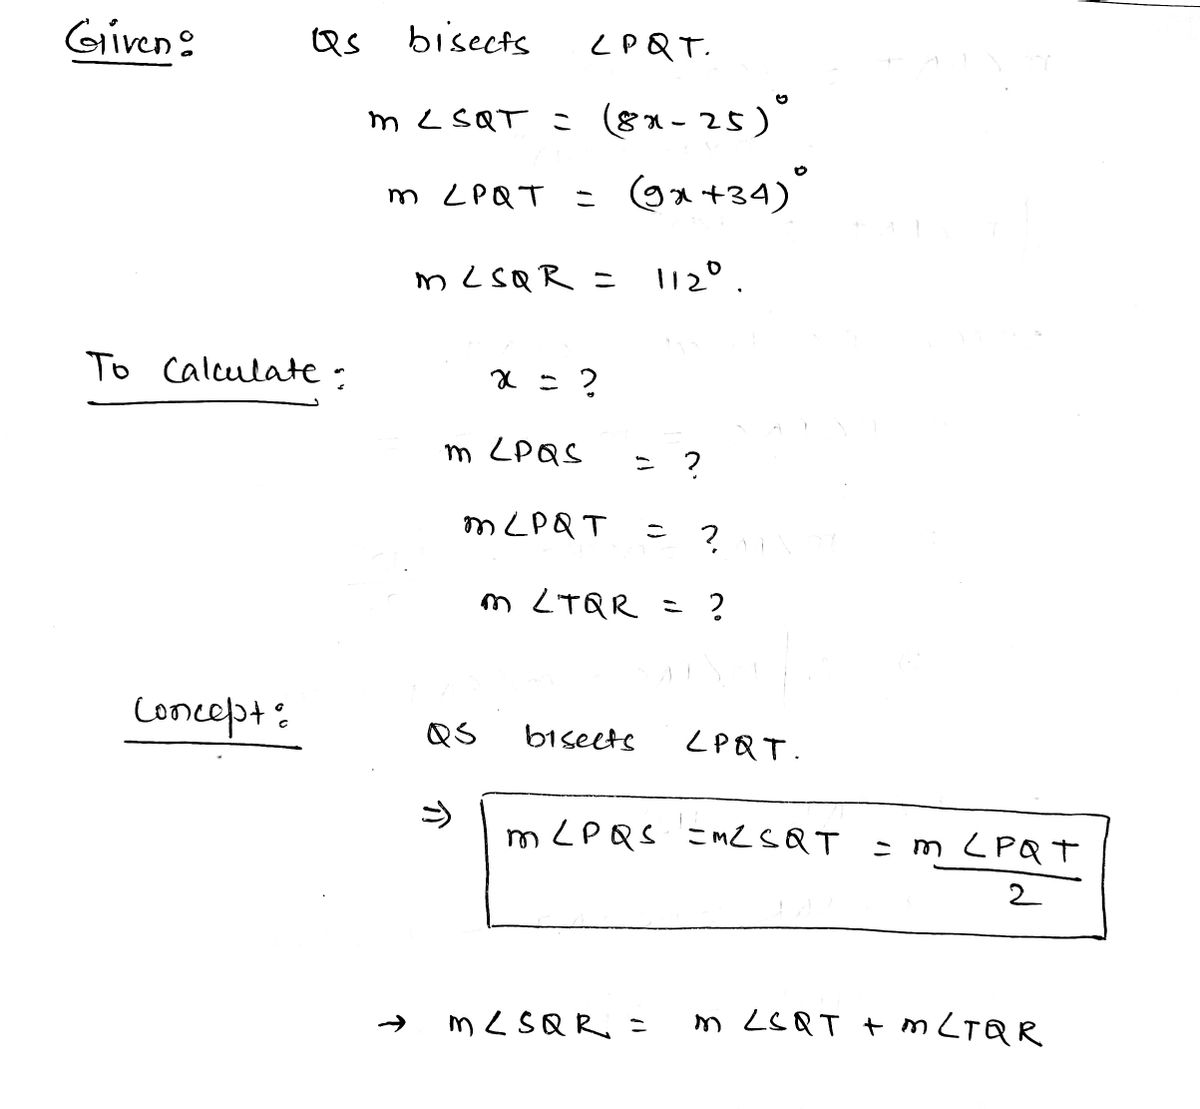 Given: QS bisects ∠PQT.
m∠SQT = (8x-25)°
m∠PQT = (9x+34)°
m∠SQR = 112°.
To Calculate: x = ?
m∠PQS = ?
m∠PQT = ?
m∠TQR = ?
Concept: QS bisects ∠PQT.
⇒ m∠PQS = m∠SQT = m∠PQT / 2
→ m∠SQR = m∠SQT + m∠TQR